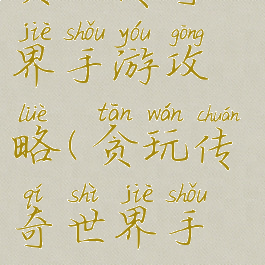 jiè shǒu yóu gōng
界手游攻
lüè tān wán chuán
略(贪玩传
qí shì jiè shǒu
奇世界手